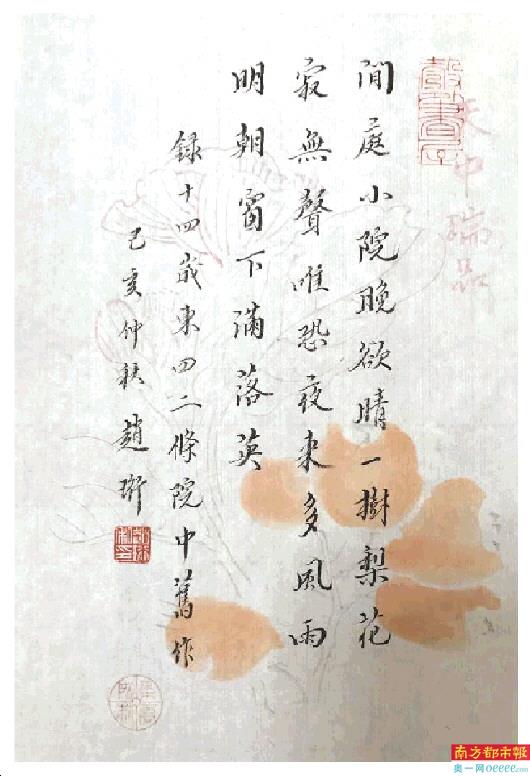 閒庭小院晚欲晴一樹梨花
寂無聲唯恐夜來多風雨
明朝窗下滿落英
錄十四歲東四二條院中舊作
己亥仲秋趙珩
天中瑞品
南方都市報
奥一网oeeee.com